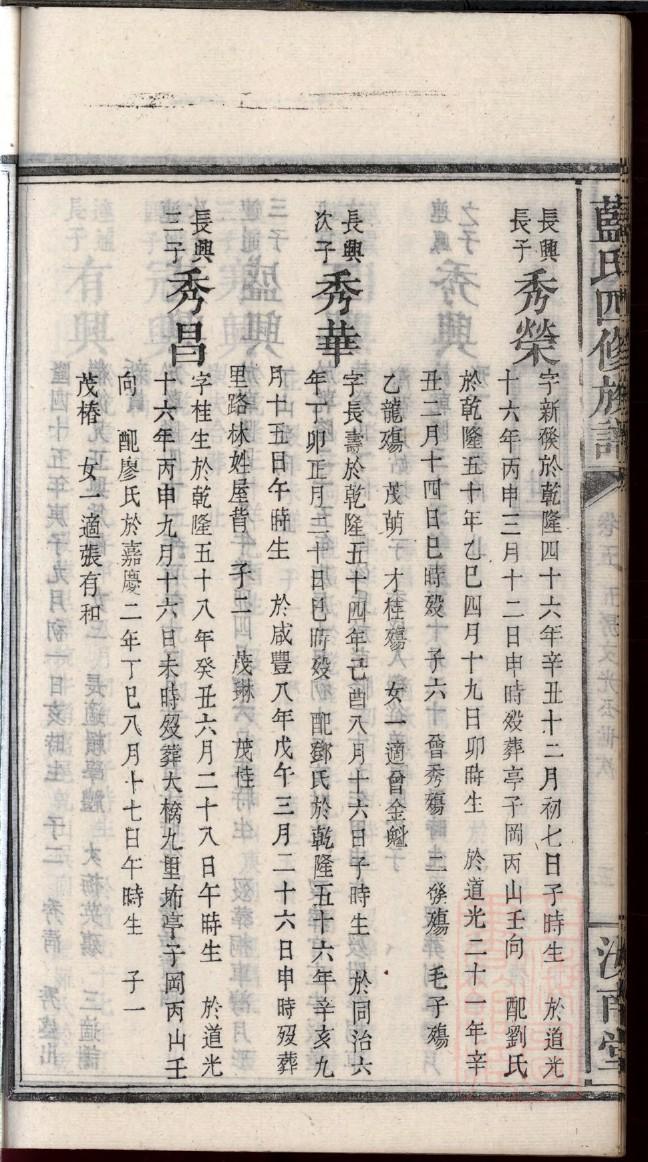 藍氏四修族譜 卷五
汝南堂
長興長子 秀榮 字新發於乾隆四十六年辛丑十二月初七日子時生 於道光
十六年丙申三月十二日申時歿葬亭子岡丙山壬向 配劉氏
於乾隆五十年乙巳四月十九日卯時生 於道光二十一年辛
丑二月十四日巳時歿 子六 曾秀殤 二俊殤 毛子殤
乙龍殤 茂萌 才桂殤 女一適曾金魁
長興次子 秀華 字長壽於乾隆五十四年己酉八月十六日子時生 於同治六
年丁卯正月三十日巳時歿 配鄧氏於乾隆五十六年辛亥九
月十五日午時生 於咸豐八年戊午三月二十六日申時歿葬
里路林姓屋背 子二 茂琳 茂佳
長興三子 秀昌 字桂生於乾隆五十八年癸丑六月二十八日午時生 於道光
十六年丙申九月十六日未時歿葬大橋九里坳亭子岡丙山壬
向 配廖氏於嘉慶二年丁巳八月十七日午時生 子一
茂椿 女一適張有和